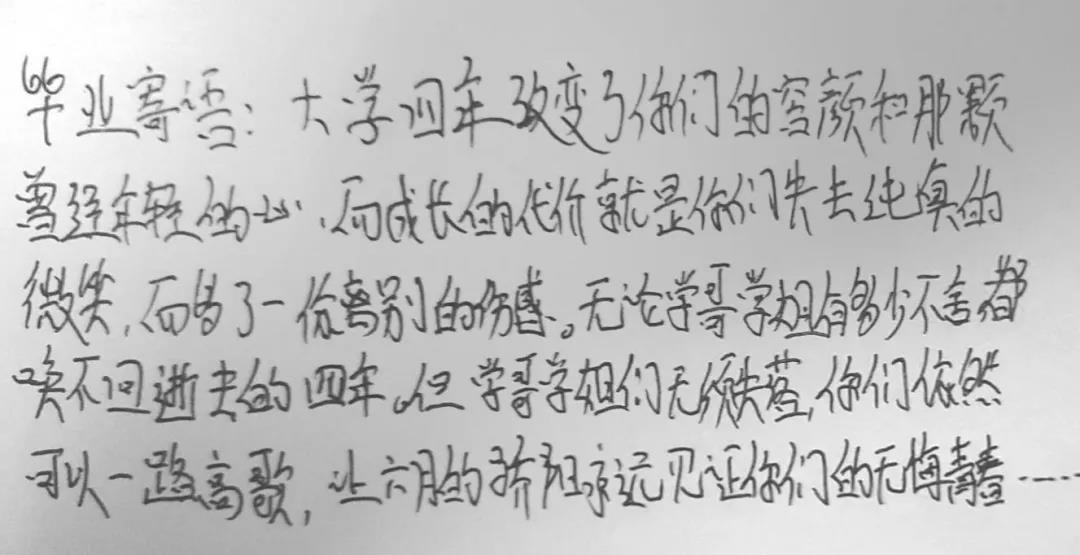 毕业寄语：大学四年改变了你们的容颜和那颗
曾经年轻的心，而成长的代价就是你们失去纯真的
微笑，而多了一份离别的伤感。无论学哥学姐有多少不舍都
唤不回逝去的四年。但学哥学姐们无须失落，你们依然
可以一路高歌，让六月的骄阳永远见证你们的无悔青春……